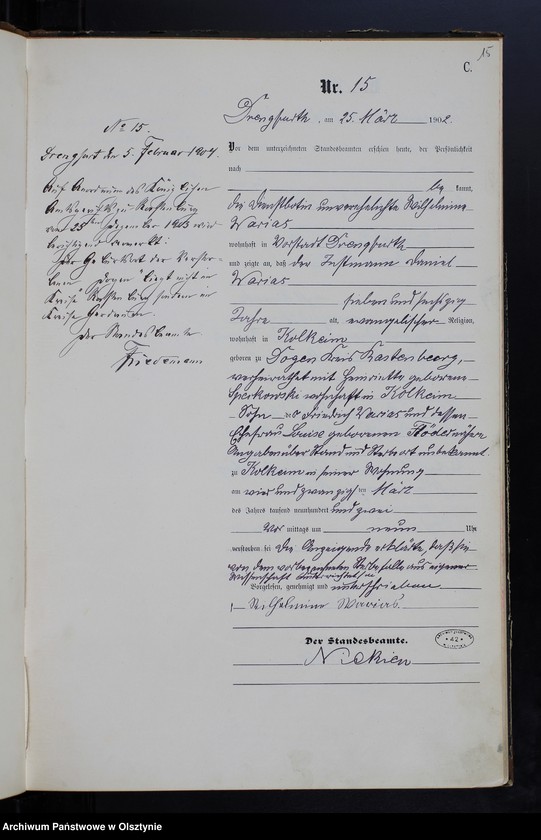 15
C.
Nr. 15
Drengfurth, am 25. März 1902.
Vor dem unterzeichneten Standesbeamten erschien heute, der Persönlichkeit
nach
be kannt,
die Dienstbotin unverehelichte Wilhelmine
Warias
wohnhaft in Vorstadt Drengfurth
und zeigte an, daß der Instmann Daniel
Warias
sieben und sechszig
Jahre alt, evangelischer Religion,
wohnhaft in Kolkeim
geboren zu Dogen Kreis Rastenburg,
verheirathet mit Henriette geborene
wohnhaft in Kolkeim
Sohn Friedrich Warias und dessen
Ehefrau Louise geborenen
Angaben über Stand und unbekannt.
zu Kolkeim in seiner Wohnung
am vier und zwanzigsten März
des Jahres tausend neunhundert und zwei
Vor mittags um neun Uhr
verstorben sei. Die Anzeigende erklärte, daß sie
von dem vorbezeichneten Sterbefalle aus eigener
Wissenschaft unterrichtet sei
Vorgelesen, genehmigt und unterschrieben
Wilhelmine Warias.
Der Standesbeamte.
42
No 15.
Drengfurt den 5. Februar 1904.
Auf Anordnung des Königlichen
Amtsgerichts zu Rastenburg
vom 25ten 1903 wird
berichtigend vermerkt:
Der Geburtsort des Verstor-
benen "Dogen" liegt nicht im
Kreise Rastenburg sondern im
Kreise Gerdauen.
Der Standesbeamte
Friedemann
Archiwum Państwowe w Olsztynie